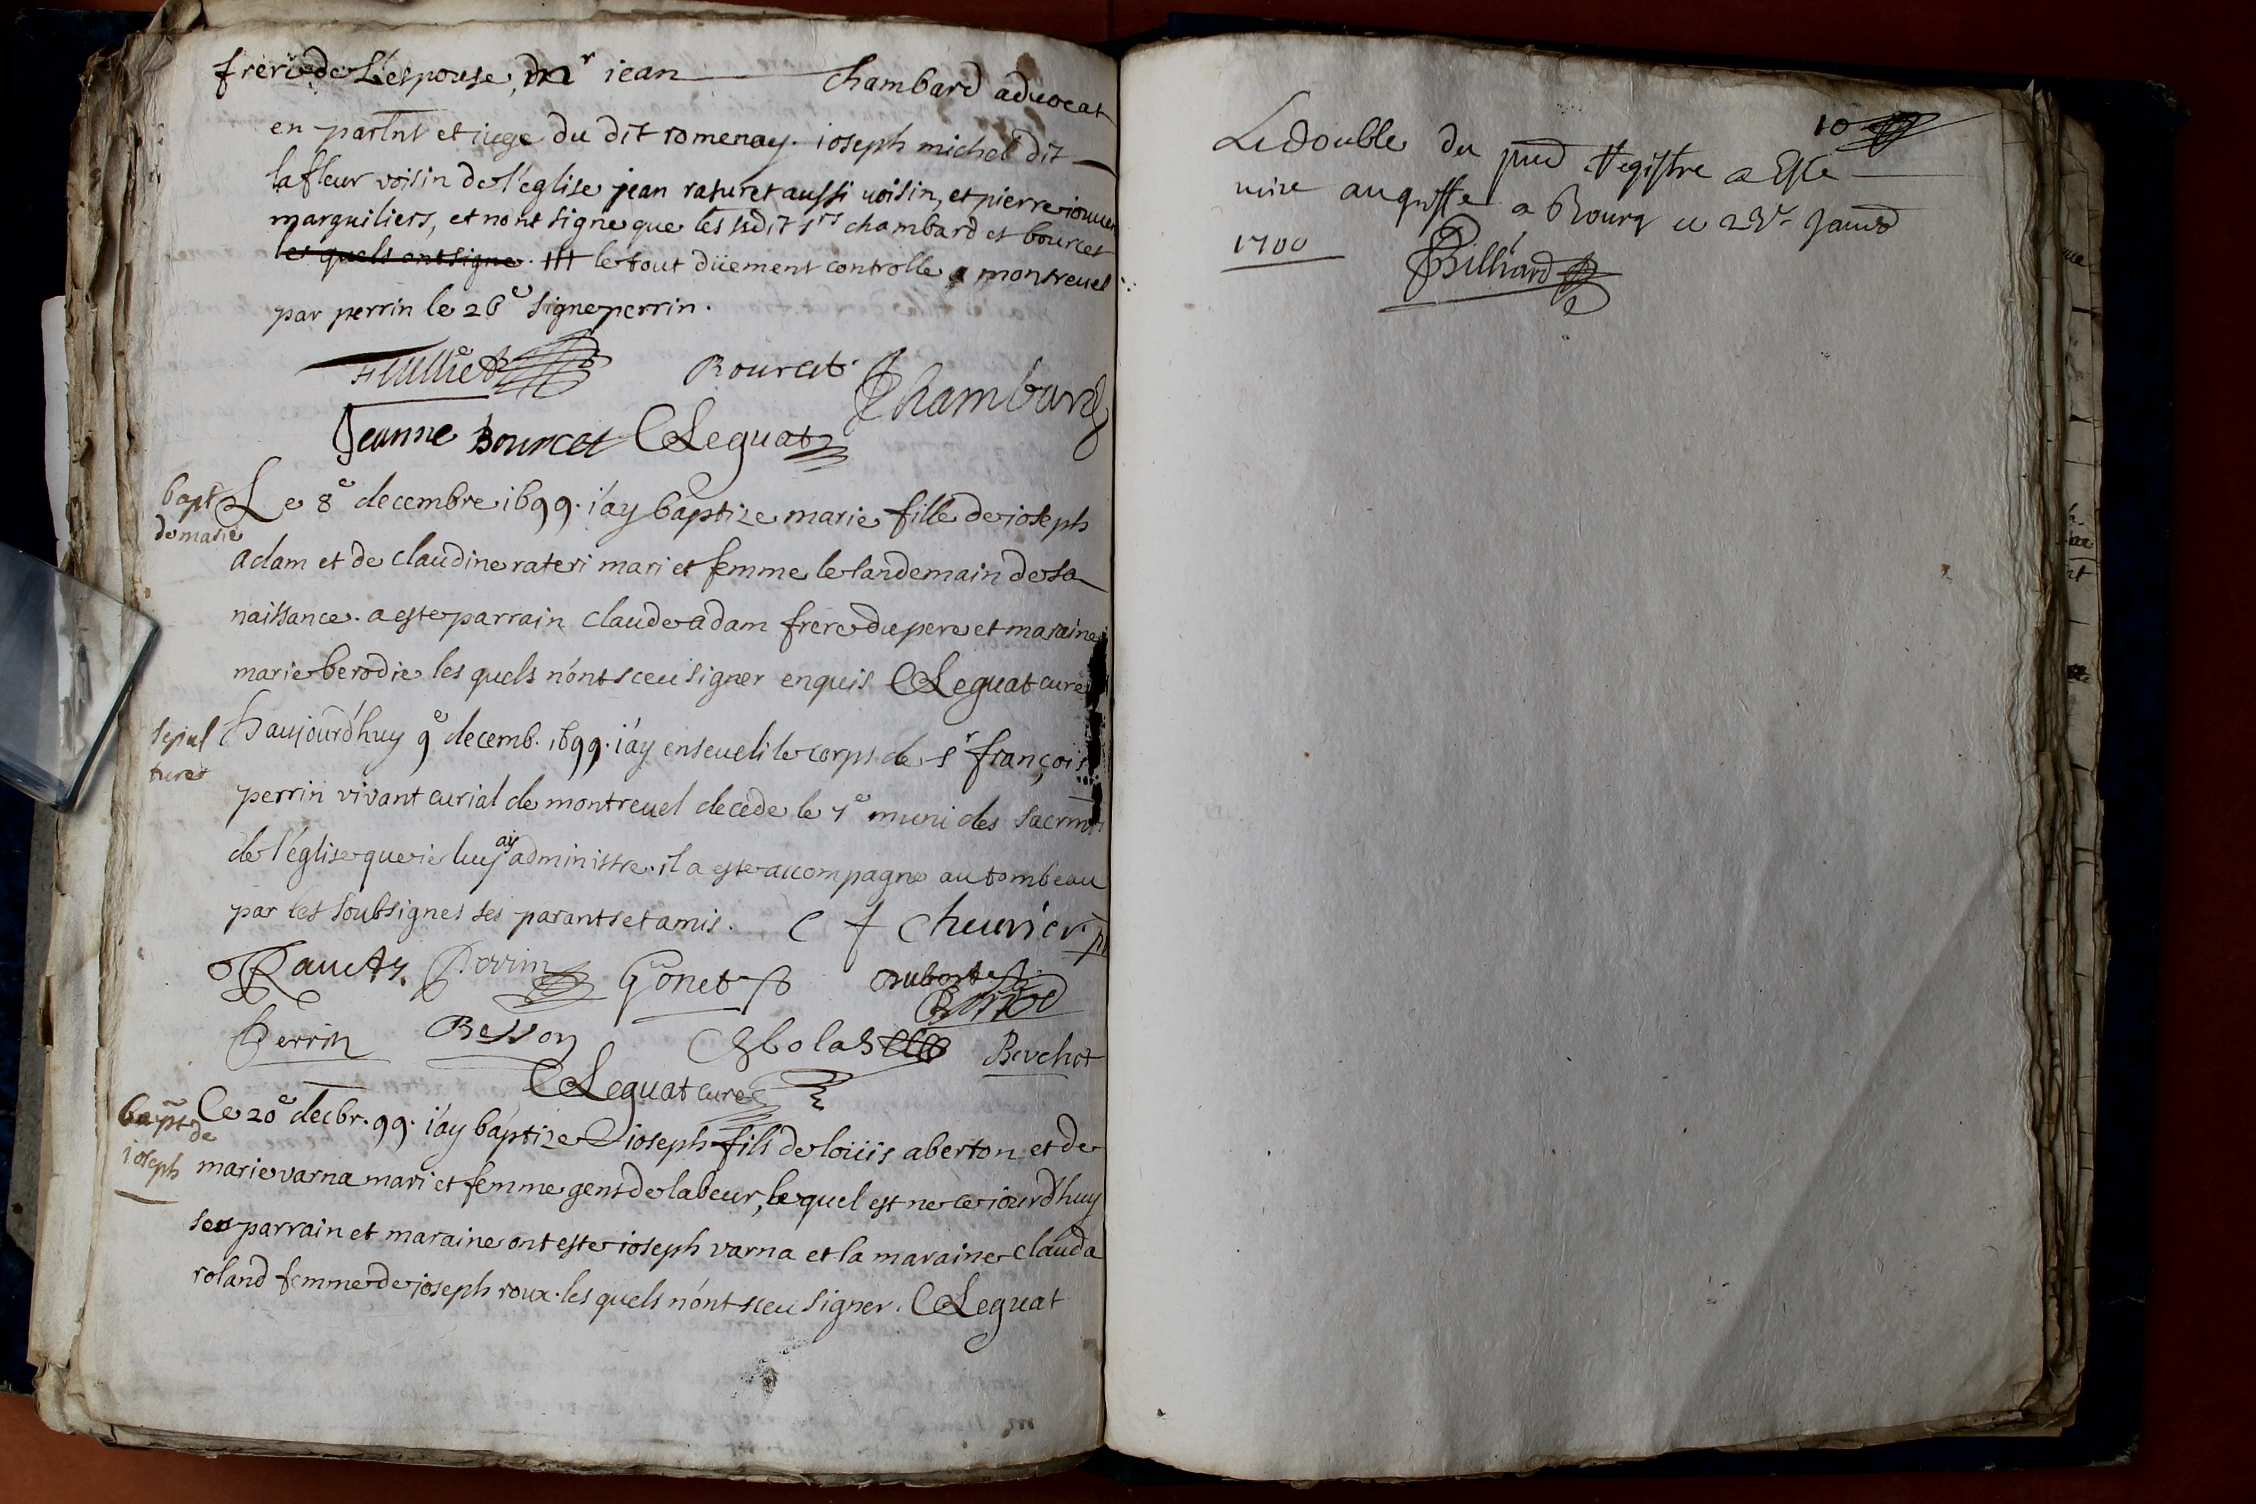 frere de L'espouse, mr jean chambard advocat
en parlnt et iuge du dit romenay. ioseph michel dit
lafleur voisin de l'eglise jean raturet aussi voisin, et pierre
marguiliers, et nont signe que les sdit srs chambard et bourcet
les quels ont signe. le tout düement controlle a montrevel
par perrin le 26e signe perrin.
Bourcet Chambard
Jeanne Bourcet CLeguat
bapt
de marie
Le 8e decembre 1699. i'ay baptize marie fille de ioseph
adam et de claudine rateri mari et femme le landemain de sa
naissance. a este parrain claude adam frere du pere et maraine
marie berodie les quels n'ont sceu signer enquis CLeguat cure
sepul
ture
haujourd'huy 9e decemb. 1699. i'ay enseveli le corps de sr françois
perrin vivant curial de montrevel decede le 7e muni des sacrmts
de l'eglise que ie luy ay administre. il a este accompagne au tombeau
par les soubsignes ses parants et amis. C f Chevrier
Perrin Gonet
Perrin Besson Brochot
CLeguat cure
bapt de
ioseph
Ce 20e decbr. 99. i'ay baptize ioseph fils de loüis aberton et de
marie varna mari et femme gens de labeur, lequel est ne ce iourd'huy
ses parrain et maraine ont este ioseph varna et la maraine clauda
roland femme de ioseph roux. les quels n'ont sceu signer. CLeguat
10
Le double du pnt Registre a Esté
mise au greffe a Bourg ce janvd
1700
Billiard